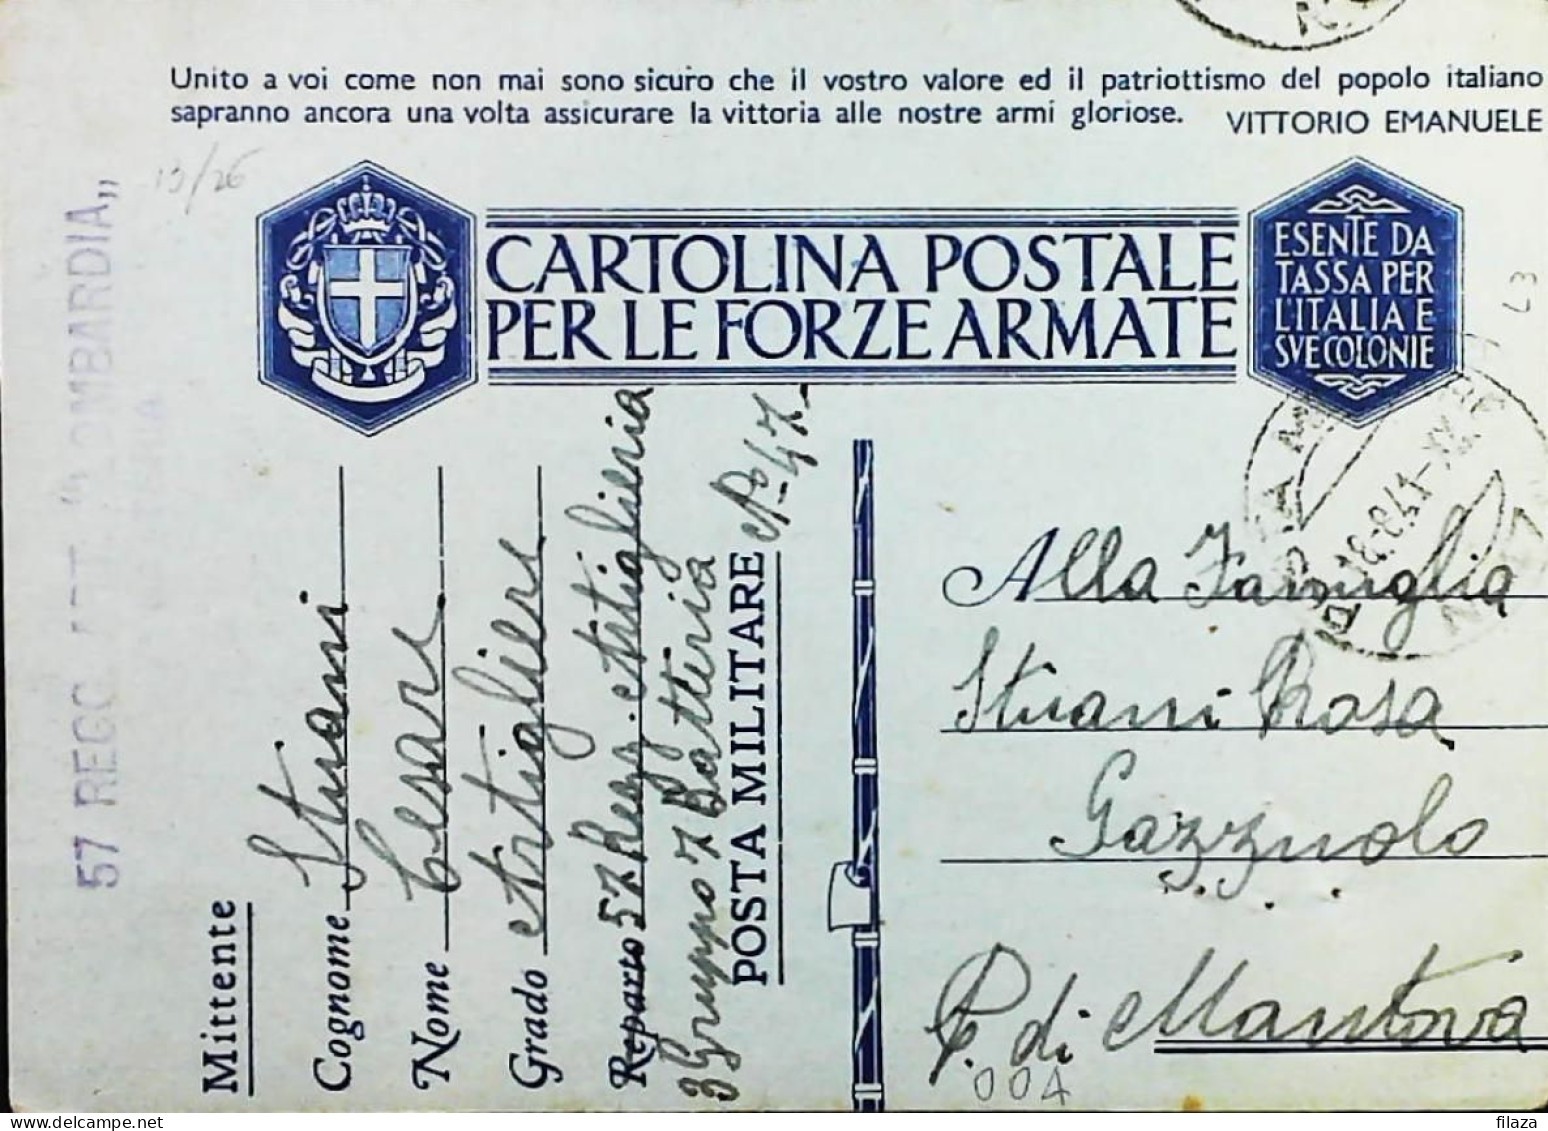 Unito a voi come non mai sono sicuro che il vostro valore ed il patriottismo del popolo italiano
sapranno ancora una volta assicurare la vittoria alle nostre armi gloriose.
VITTORIO EMANUELE
13/26
CARTOLINA POSTALE
PER LE FORZE ARMATE
ESENTE DA
TASSA PER
L'ITALIA E
SVE COLONIE
57 REGG. ART. "LOMBARDIA"
Mittente
Cognome Stuani
Nome Cesare
Grado Artigliere
Reparto 57 Regg. Artiglieria
3 Gruppo 7 Batteria
POSTA MILITARE No 47-
POSTA MILITARE
18-8-41-XIX
Alla Famiglia
Stuani Rosa
Gazzuolo
P. di Mantova
004
filaza